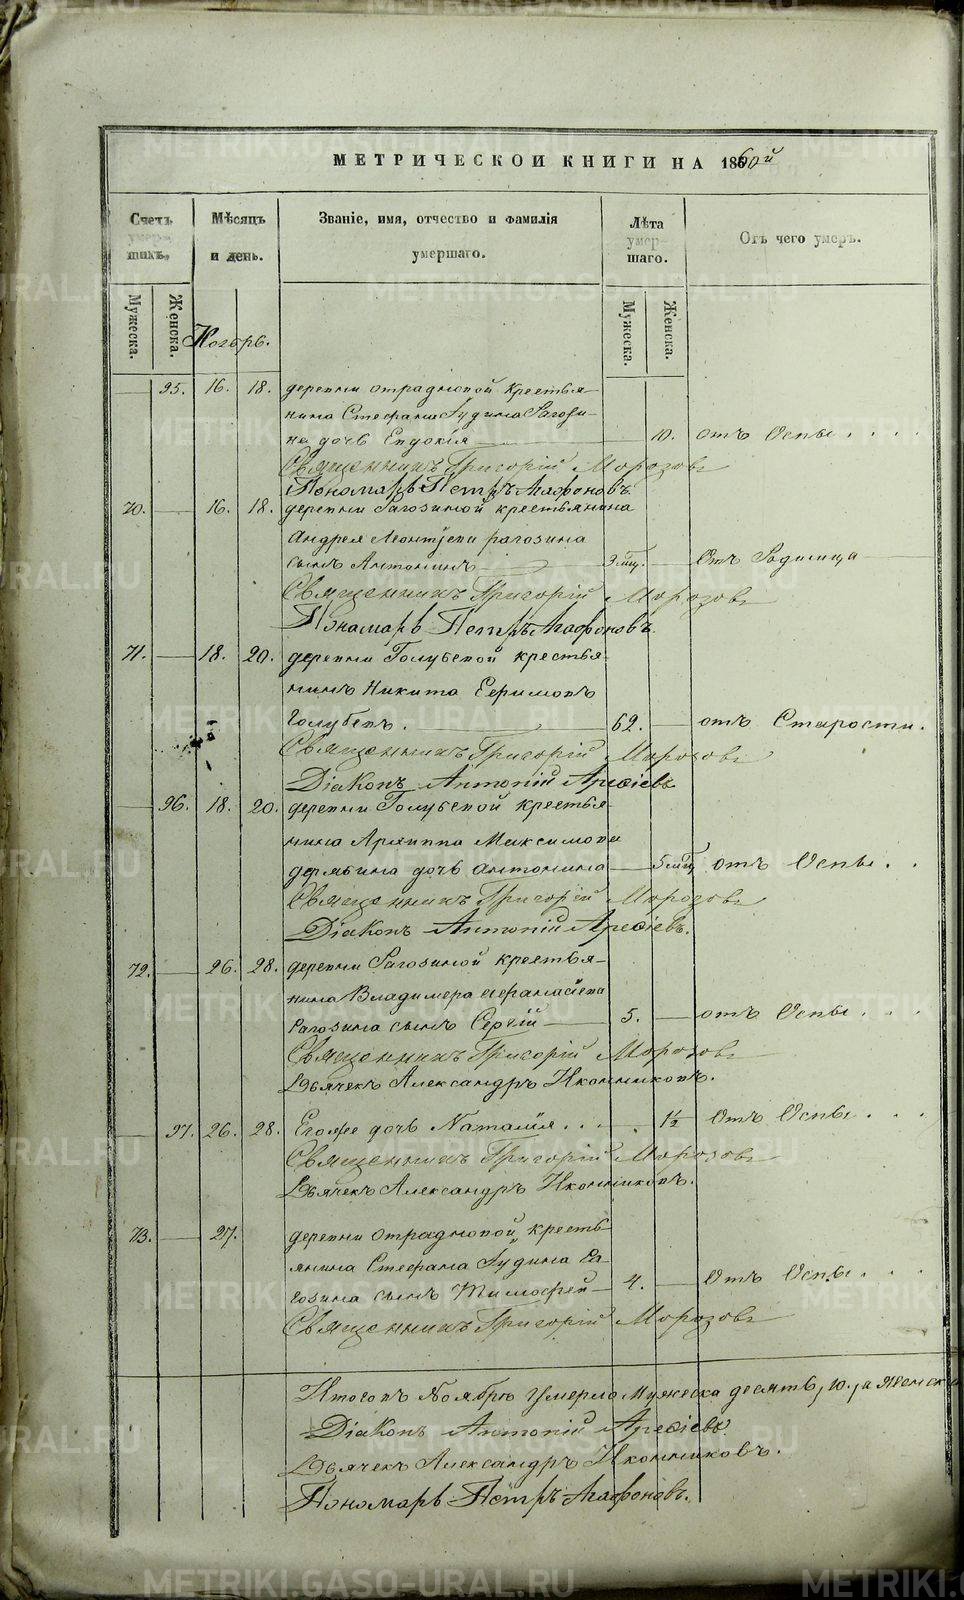 МЕТРИЧЕСКОЙ КНИГИ НА 1860й
Счетъ умершихъ. Мѣсяцъ и день. Званіе, имя, отчество и фамилія умершаго. Лѣта умершаго. Отъ чего умеръ.
Мужеска. Женска. Мужеска. Женска.
Ноябрь.
95. 16. 18. деревни Отрадновой крестья-
нина Стефана Іудина Рагози-
на дочь Евдокія 10. отъ Оспы . . . .
Священникъ Григорій Морозовъ
Пономарь Петръ Агафоновъ
70. 16. 18. деревни Рагозиной крестьянина
Андрея Леонтьева рагозина
сынъ Антонинъ 3 мц. Отъ Родимца
Священникъ Григорій Морозовъ
Пономарь Петръ Агафоновъ.
71. 18. 20. деревни Голубевой крестья-
нинъ Никита Ефимовъ
Голубевъ. 62. отъ Старости.
Священникъ Григорій Морозовъ
Діаконъ Антоній Арефіевъ
96. 18. 20. деревни Голубевой крестья
нина Архиппа Максимова
дерябина дочь Антонина 5 мц отъ Оспы . .
Священникъ Григорій Морозовъ
Діаконъ Антоній Арефіевъ.
72. 26. 28. деревни Рагозиной крестья-
нина Владимера Афанасіева
Рагозина сынъ Сергій 5. отъ Оспы . . .
Священникъ Григорій Морозовъ
Дьячекъ Александръ Иконниковъ.
97. 26. 28. Егоже дочь Наталія . . . 1½ Отъ Оспы . . .
Священникъ Григорій Морозовъ
Дьячекъ Александръ Иконниковъ.
73. 27. деревни Отрадновой кресть-
янина Стефана Іудина Ра-
гозина сынъ Тимофей 4. Отъ Оспы . . .
Священникъ Григорій Морозовъ
Итого въ Ноябрѣ умерло Мужеска десять, 10., а Женск
Діаконъ Антоній Арефіевъ
Дьячекъ Александръ Иконниковъ.
Пономарь Петръ Агафоновъ.
METRIKI.GASO-URAL.RU